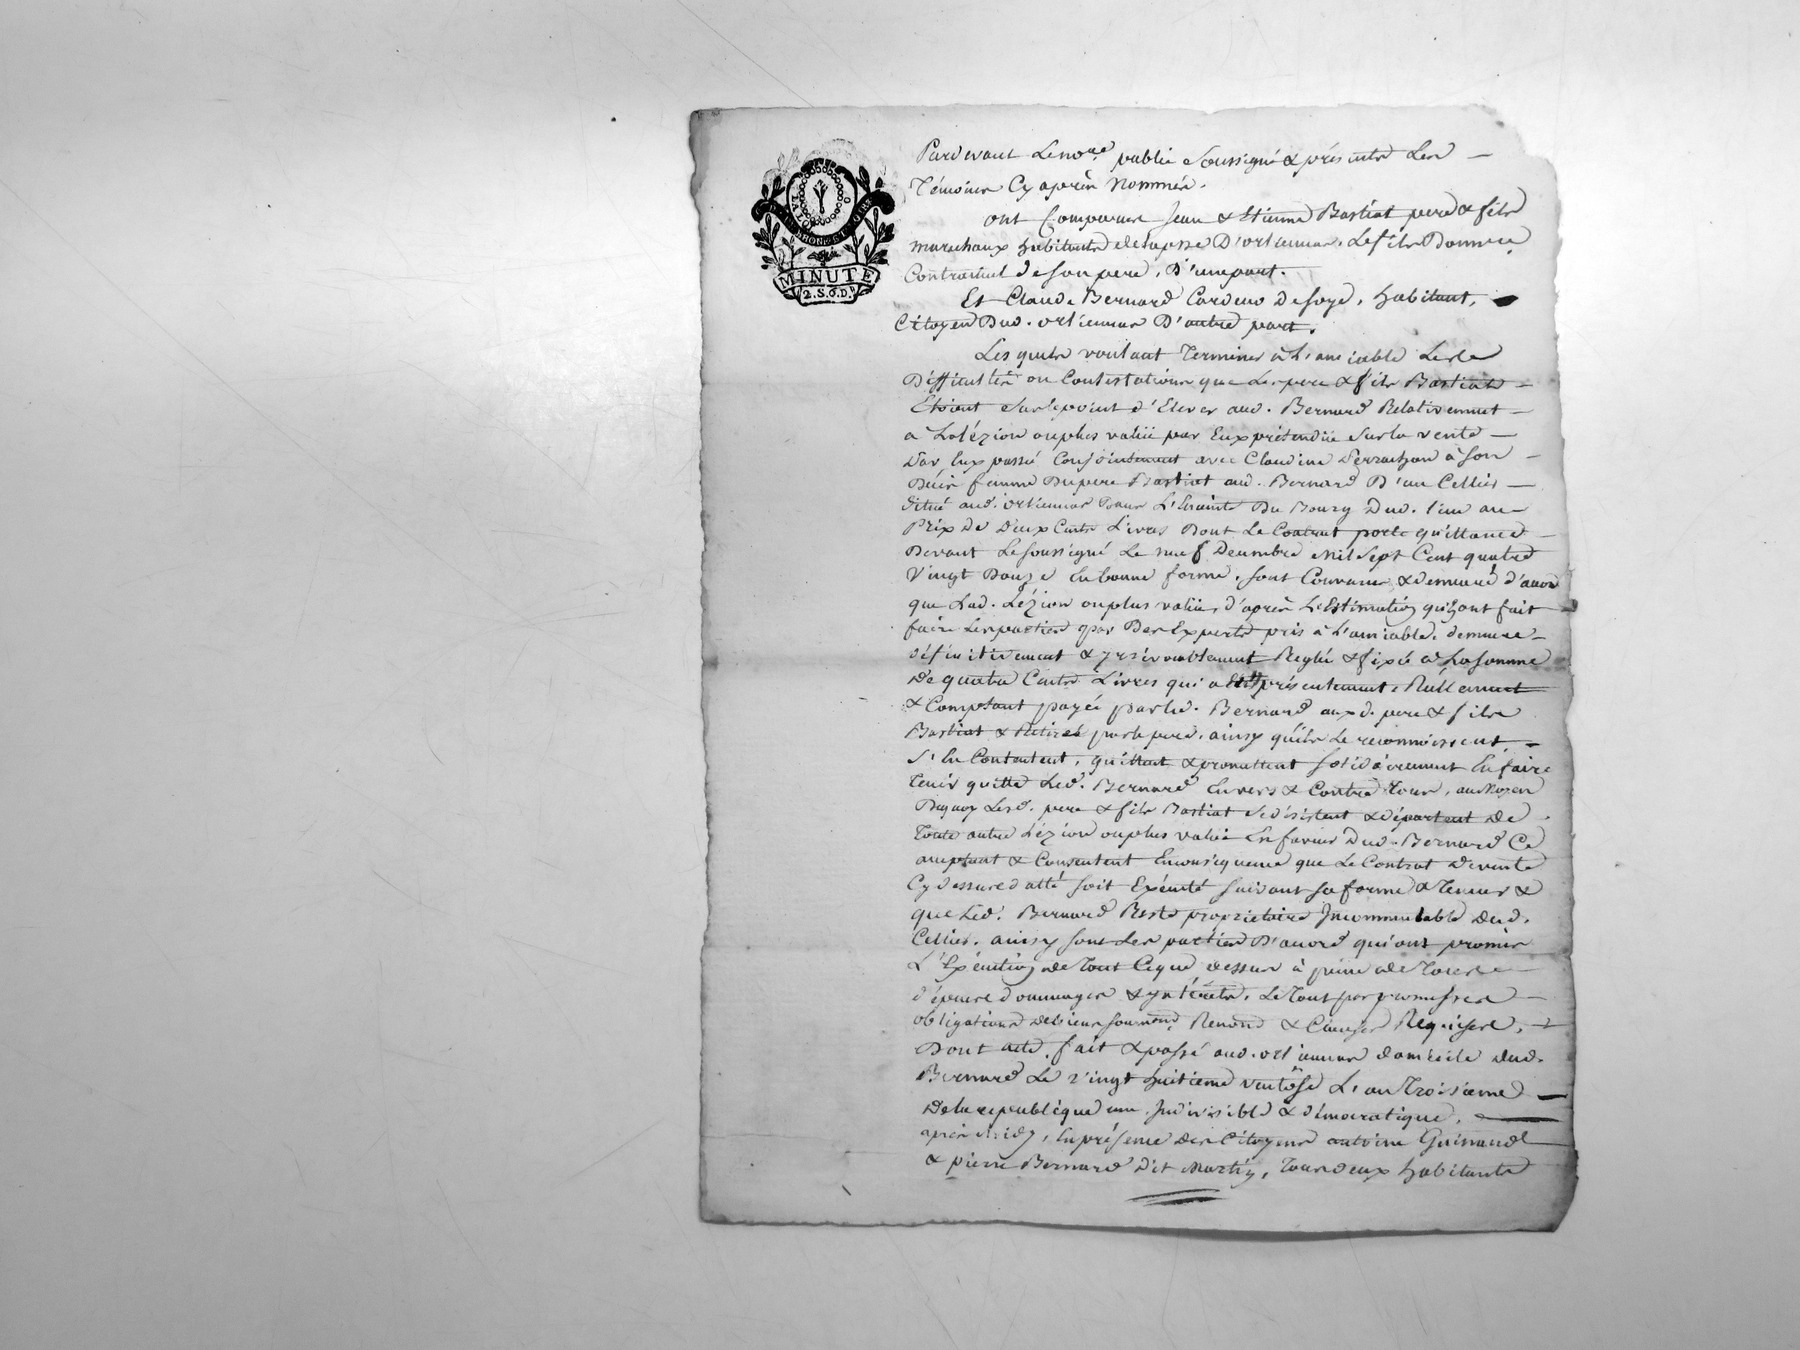 MINUTE
2.S.6.D.
Pardevant Leno.re public Soussigné & présents Les
Témoins Cy après Nommés.
ont Comparus Jean & Etienne Bastiat pere & fils
marechaux habitants delapsse D'orliennas. Le fils Donnee
Contractuel de son pere, D'unepart.
Et Claude Bernard Cardeur De soye, habitant,
Citoyen Dud. orliennas D'autre part.
Les quels voulant Terminer à L'amiable Les
Difficultés ou Contestations que Les pere & fils Bastiat
Etoient Surlepoint d'Elever aud. Bernard Relativement
a La lézion ouplus value par Eux prétendüe Sur la vente
Par Eux passé Conjointement avec Claudine à son
Décès femme Dupere Bastiat aud. Bernard D'un Cellier
Situé aud. orliennas Dans L'Enceinte Du Bourg Dud. lieu au
Prix De Deux Cents Livres Dont Le Contrat porte quittance
Devant Lesoussigné Le neuf Decembre Mil Sept Cent quatre
Vingt Douze En bonne forme, sont Convenus & demeuré d'accord
que Lad. Lézion ouplus value, d'après L'Estimation qu'ils ont fait
faire Les parties par Des Experts pris à L'amiable, demeure
définitivement & yrrévocablement Reglée & fixée à La somme
De quatre Cents Livres qui a Etté présentement, Réellement
& Comptant payée par led. Bernard aux d. pere & fils
Bastiat & Retirée par le pere, ainsy qu'ils Le reconnoissent
S'En Contentent, quittent & promettent solidairement En faire
Tenir quitte Led. Bernard Envers & Contre Tous, au Moyen
Dequoy Lesd. pere & fils Bastiat Se désistent & départent De
Toute autre Lézion ouplus value En faveur Dud. Bernard Ce
acceptant & Consentent Enconséquence que Le Contrat De vente
Cy dessus datté soit Exécuté suivant sa forme & Teneur &
que Led. Bernard Reste propriétaire Incommutable Dud.
Cellier. ainsy sont Les parties D'accord qui ont promis
L'Exécution de Tout Ceque dessus à peine de Tous
dépens dommages & yntérêts. Le Tout par promesses
obligations De biens Renond & Clauses Requises,
Dont acte, fait & passé aud. orliennas domicile dud.
Bernard Le vingt huitieme ventôse L'an Troisieme
Dela republique une Indivisible & démocratique,
après Midy, En présence des Citoyens antoine Guinand
& pierre Bernard Dit Martin, Tous deux habitants